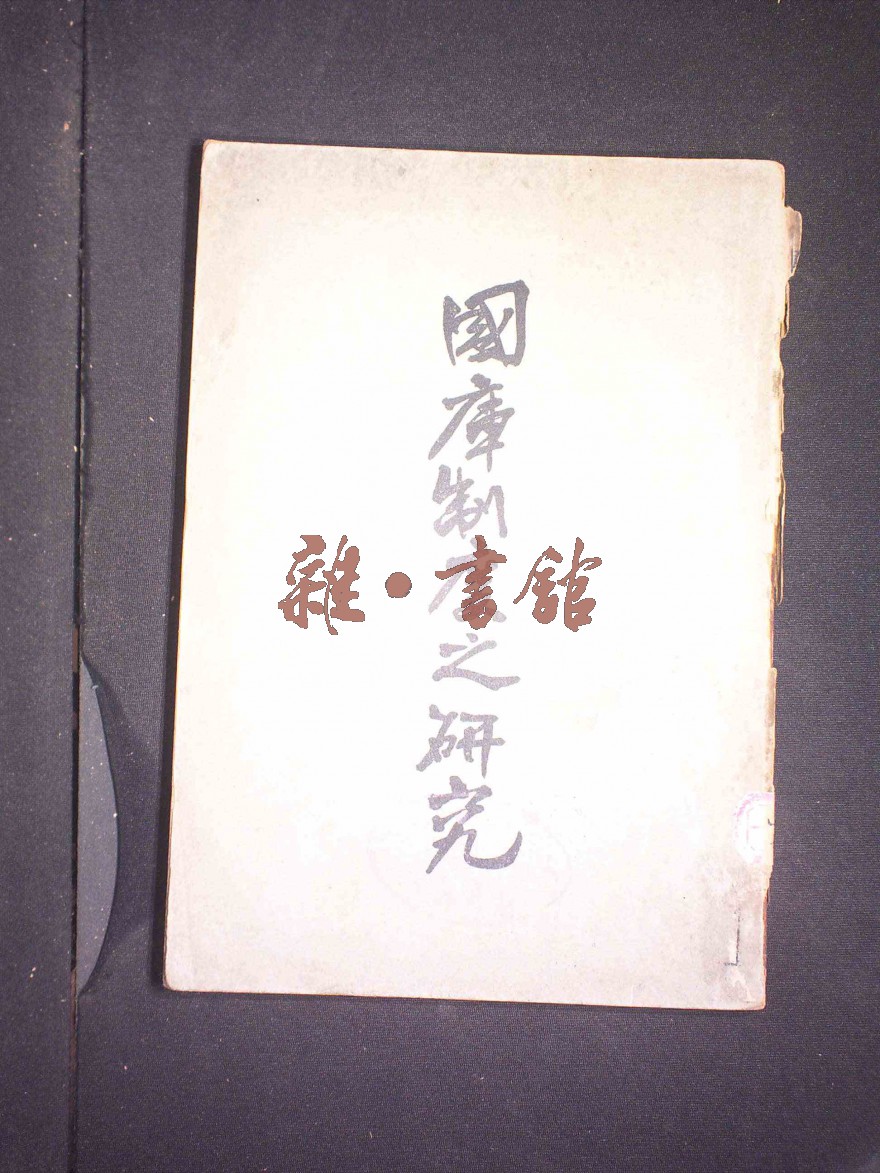 國庫制度之研究
雜·書館